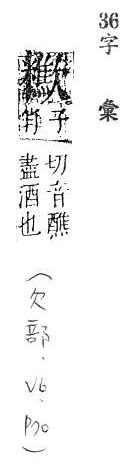 36字彙
子肖
切音醮
盡酒也
(欠部.V6.P70)